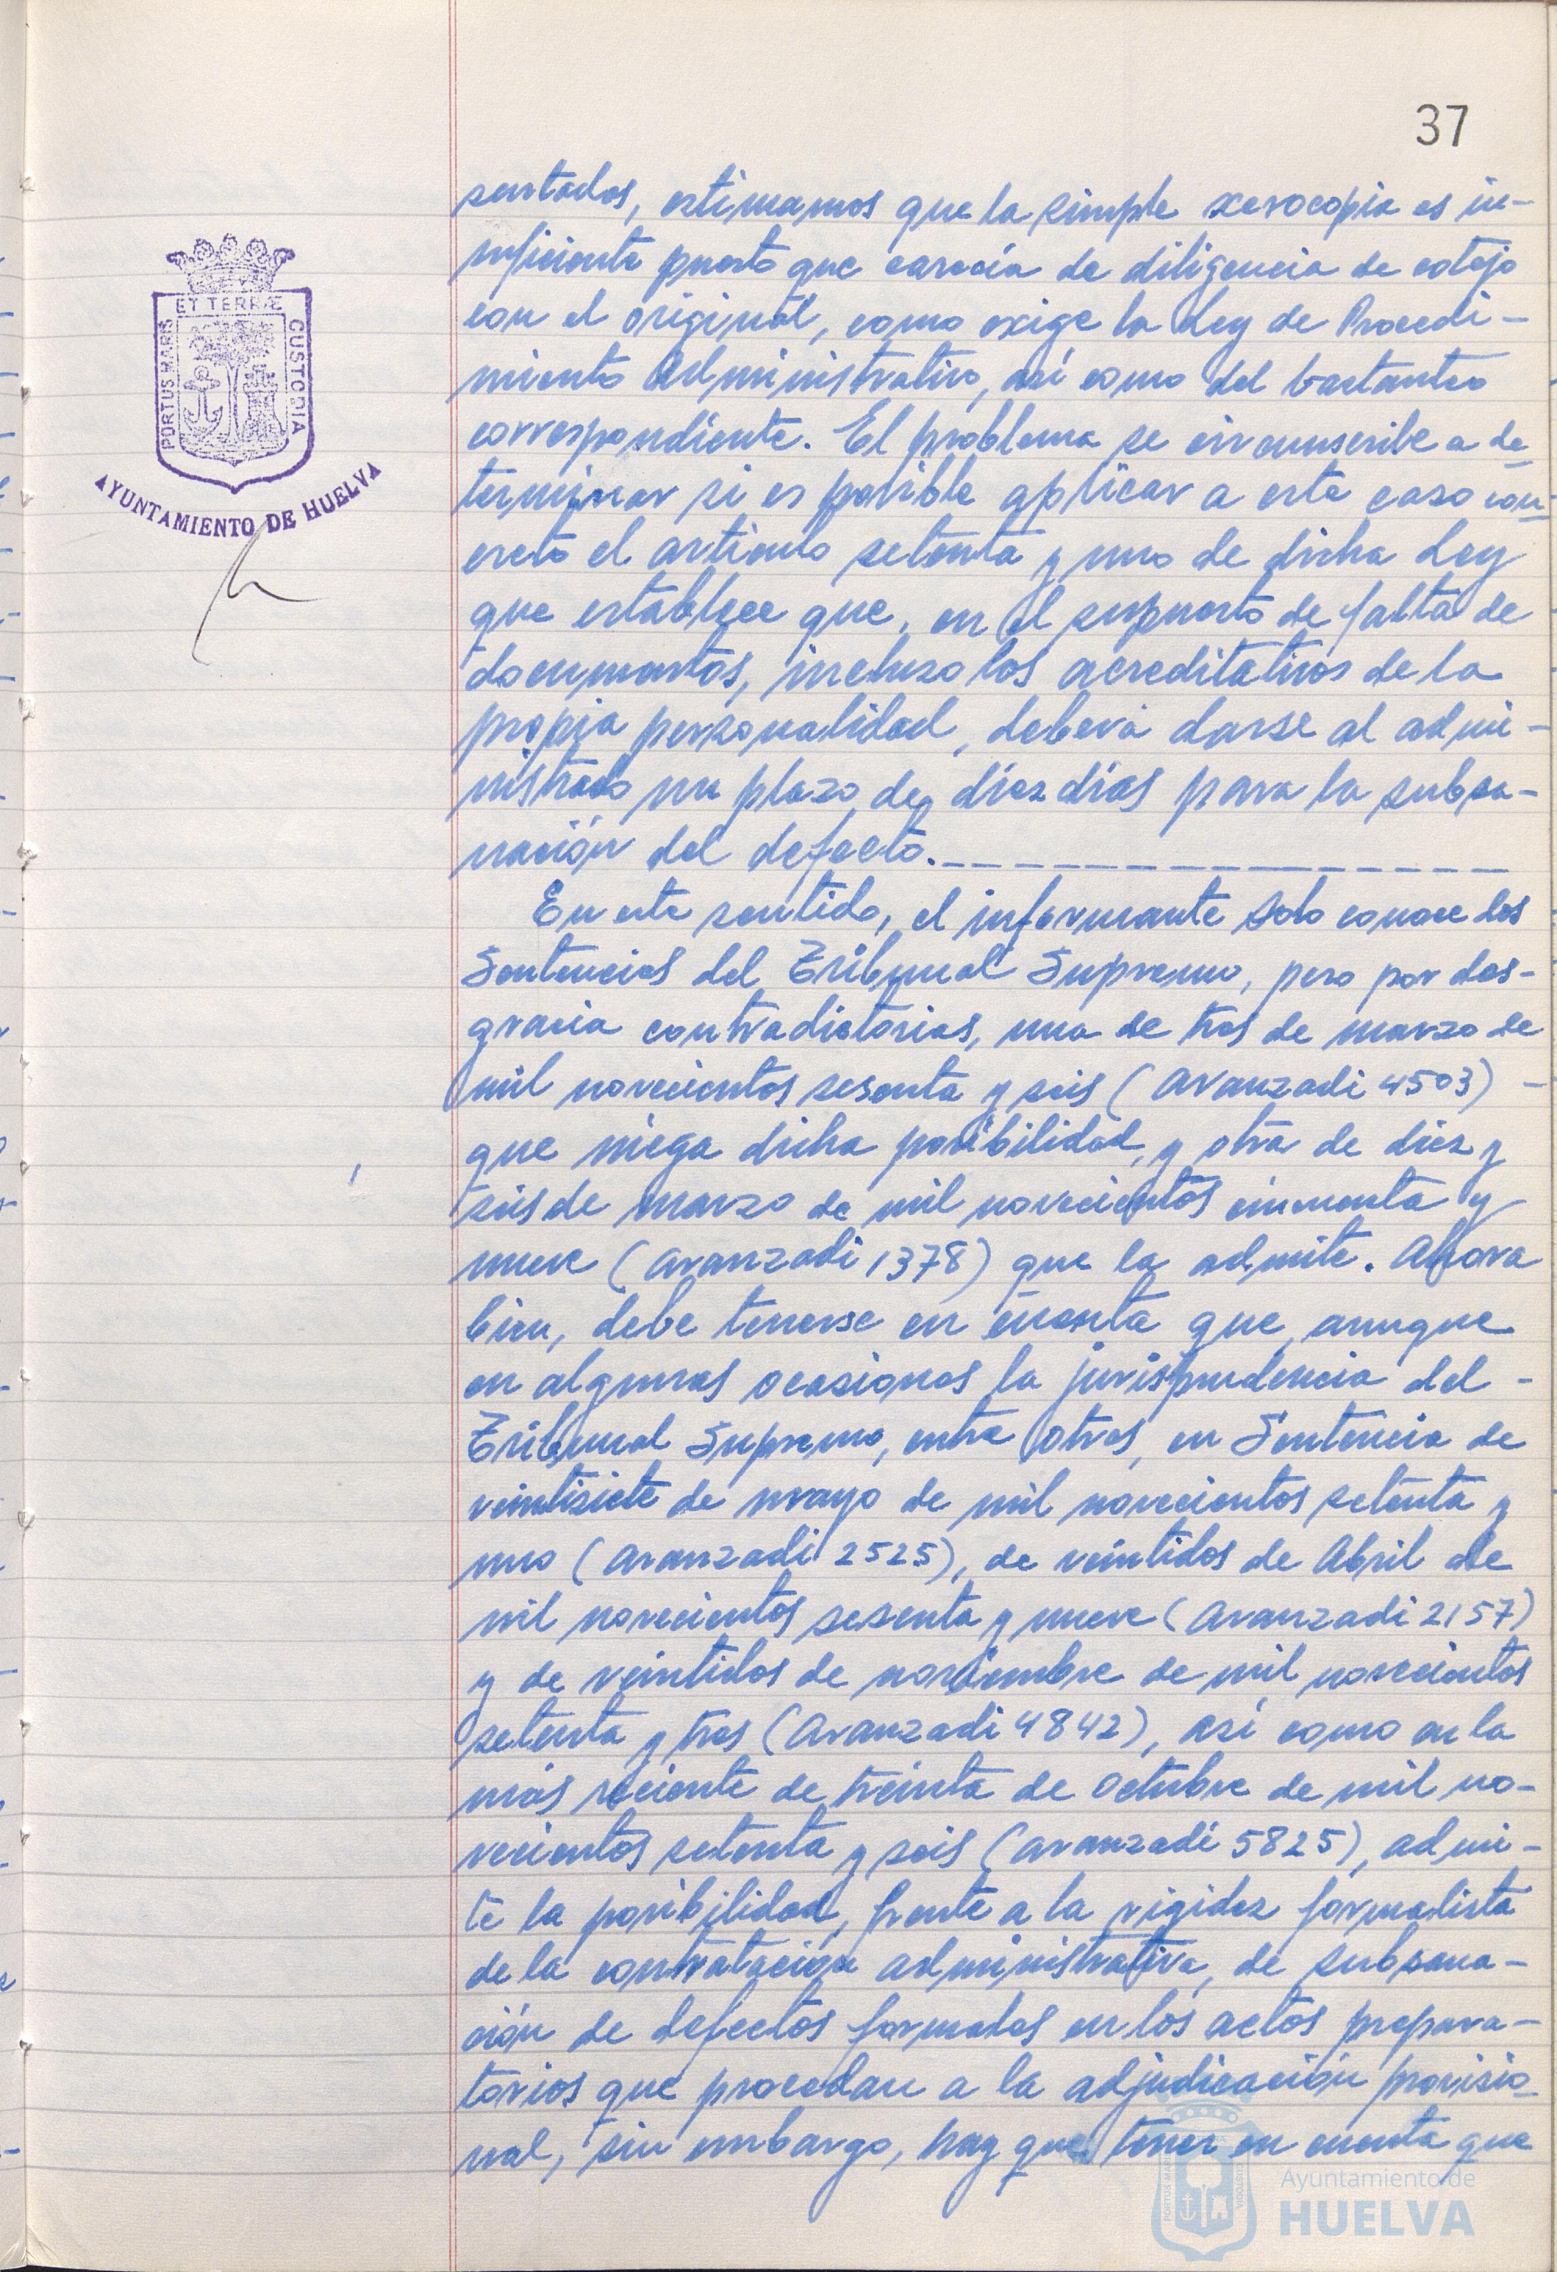 37
ET TERRÆ
PORTUS MARIS
CUSTODIA
AYUNTAMIENTO DE HUELVA
sentados, estimamos que la simple xerocopia es in-
suficiente puesto que carecía de diligencia de cotejo
con el original, como exige la Ley de Procedi-
miento Administrativo, así como del bastanteo
correspondiente. El problema se circunscribe a de-
terminar si es posible aplicar a este caso con-
creto el artículo setenta y uno de dicha Ley
que establece que, en el supuesto de falta de
documentos, incluso los acreditativos de la
propia personalidad, deberá darse al admi-
nistrado un plazo de diez días para la subsa-
nación del defecto.
En este sentido, el informante solo conoce dos
Sentencias del Tribunal Supremo, pero por des-
gracia contradictorias, una de tres de marzo de
mil novecientos sesenta y seis (Aranzadi 4503) -
que niega dicha posibilidad, y otra de diez y
seis de marzo de mil novecientos cincuenta y
nueve (Aranzadi 1378) que la admite. Ahora
bien, debe tenerse en cuenta que, aunque
en algunas ocasiones la jurisprudencia del -
Tribunal Supremo, entre otras, en Sentencia de
veintisiete de mayo de mil novecientos setenta y
uno (Aranzadi 2525), de veintidos de Abril de
mil novecientos sesenta y nueve (Aranzadi 2157)
y de veintidos de noviembre de mil novecientos
setenta y tres (Aranzadi 4842), así como en la
más reciente de treinta de Octubre de mil no-
vecientos setenta y seis (Aranzadi 5825), admi-
te la posibilidad, frente a la rigidez formalista
de la contratación administrativa, de subsana-
ción de defectos formales en los actos prepara-
torios que procedan a la adjudicación provisio-
nal, sin embargo, hay que tener en cuenta que
Ayuntamiento de
HUELVA